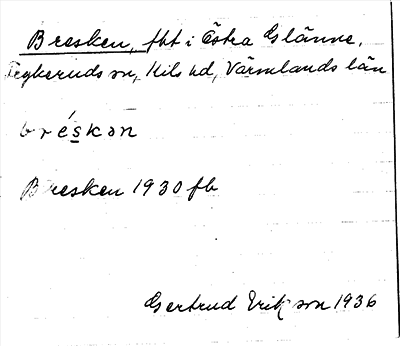 Bresken, fbt i Östra Glänne,
Segheruds sn, Kils hd, Värmlands län
bréskən
Bresken 1930 fb
Gertrud Eriksson 1936